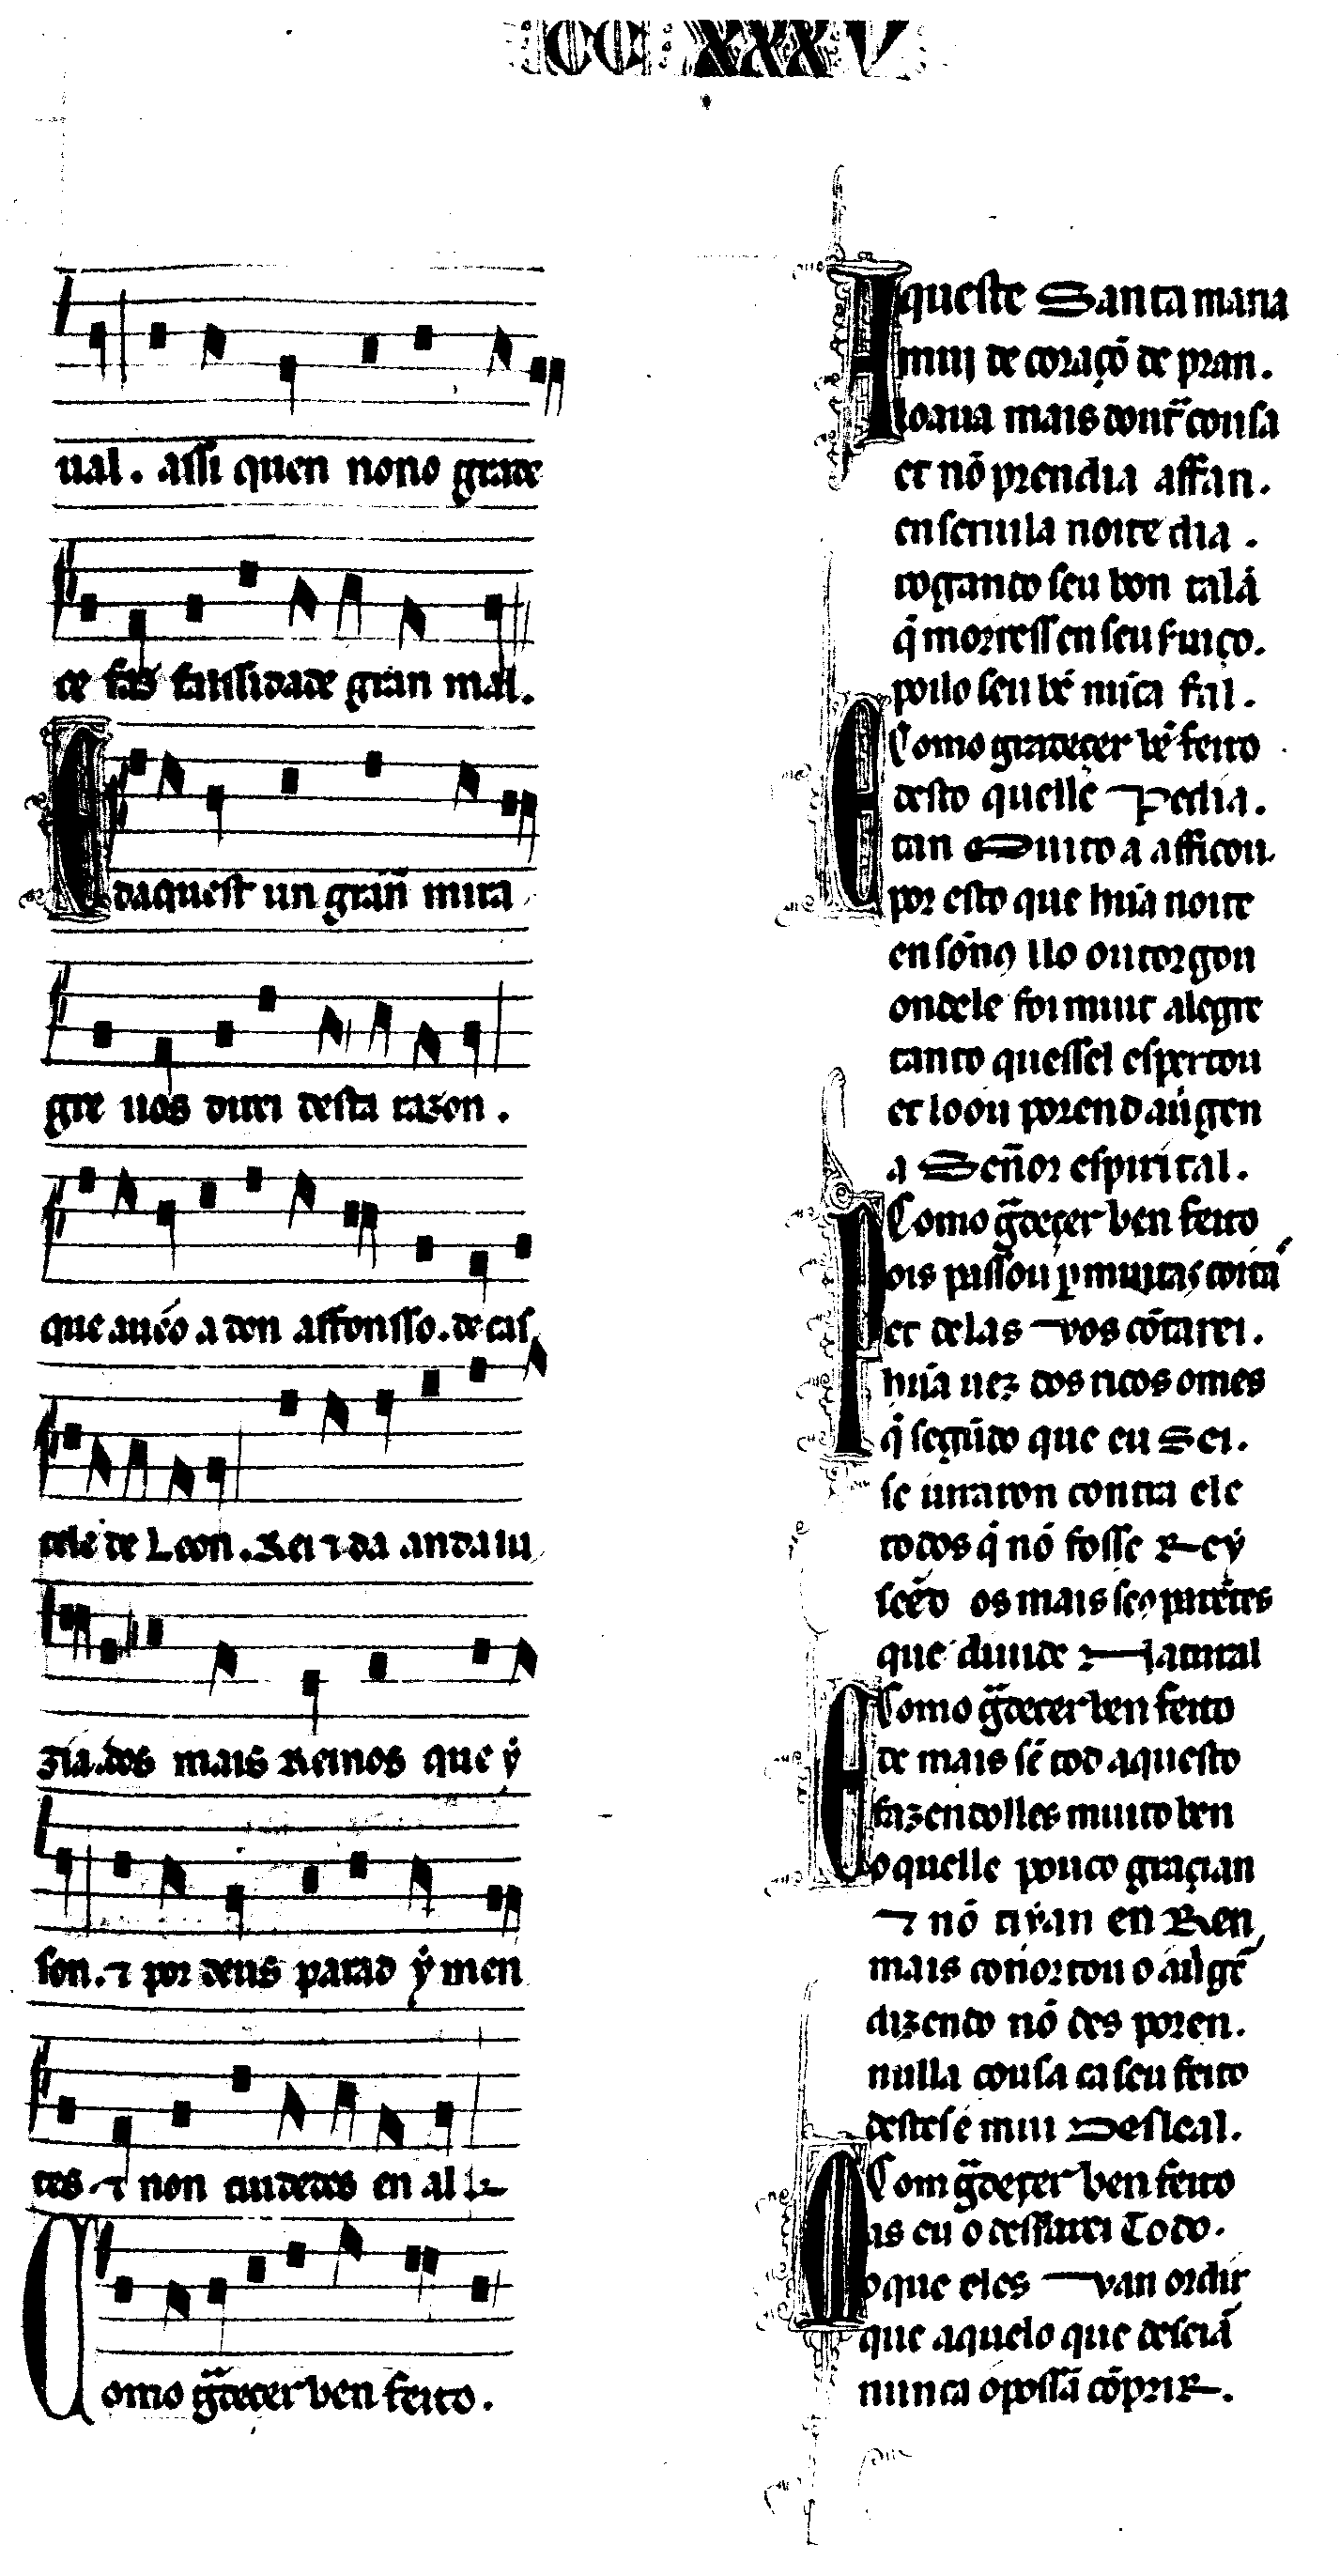 CCXXXV
ual. assi quen nono grade
ce faz falssidade gran mal.
E daquest un gran mira
gre uos direi desta razon.
que auẽo a don affonsso. de cas
tele de Leon. Rei ⁊ da andalu
zia. dos mais Reinos que ẏ
son. ⁊ por deus parad ẏ men
tes. ⁊ non cuidedes en al
Como g̃deçer ben feito.
Aqueste Santa maria
mui de coraçõ de pran.
loaua mais doutr̃ cousa
et nõ prendia affan.
en seruila noite dia.
rogando seu bon talã
q̇ morress en seu ſuiço.
poilo seu bẽ nũca fal.
Como gradeçer bẽ feito
E desto quellẽ Pedia.
tan Muito a afficou
por esto que hũa noite
en sõnꝯ llo outorgou
ondele foi muit alegre
tanto quessel espertou
et loou porend aũgen
a Señor espirital.
Como g̃deçer ben feito
Pois passou ꝑ muitas coitã
et delas vos cõtarei.
hũa uez dos ricos omes
q̇ segũdo que eu Sei.
se iuraron contra ele
todos q̇ nõ fosse Reẏ
seẽd os mais seꝯ parẽtes
que diuide Natural
Como g̃deçer ben feito
E de mais sẽ tod aquesto
fazendolles muito ben
o quelle pouco graçian
⁊ nõ tiỹan en Ren
mais conortou o aũgẽ
dizendo nõ des poren.
nulla cousa ca seu feito
destes é mui Desleal.
Com g̃deçer ben feito
Mas eu o desfarei Todo.
o que eles van ordir
que aquelo que deseiã
nunca o possã cõprir.